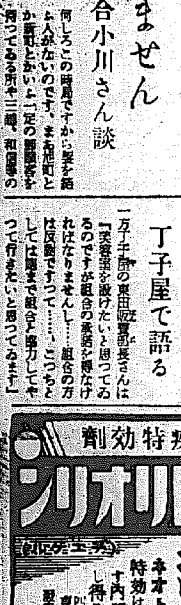 ません
合小川さん談
何しろこの時局ですから髪を結
ふ人がないのです、まあ旭町と
か新町とかいふ一定の華客を
持つてゐる所や三越、和信等の
丁子屋で語る
一方丁子屋の東田販賣部長さんは
『美容室を設けたいと思つてゐ
るのですが組合の承諾を得なけ
ればなりませんし……組合の方
は反對ですつて……、こつちと
しては飽まで組合と協力してや
つて行きたいと思つてゐます』
特効劑
リオリン
ネオト
特効は
す内
し得